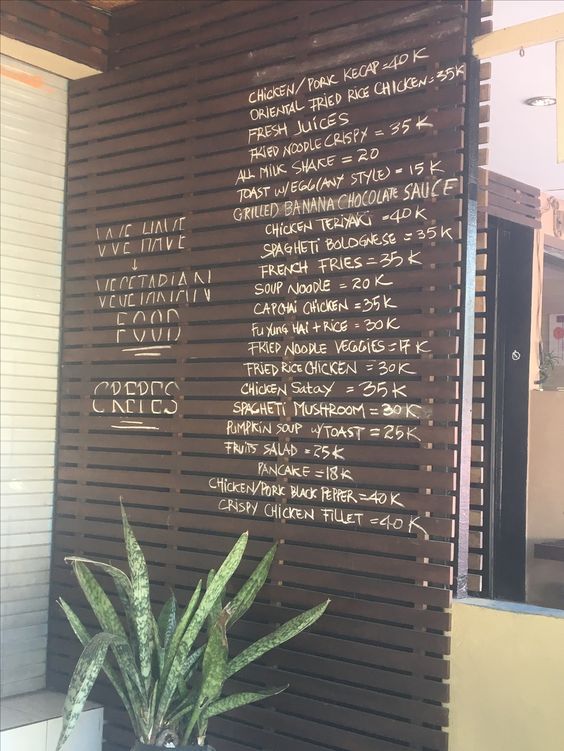 CHICKEN/PORK KECAP =40K
ORIENTAL FRIED RICE CHICKEN=35K
FRESH JUICES
FRIED NOODLE CRISPY = 35K
ALL MILK SHAKE = 20
TOAST W/EGG(ANY STYLE) = 15K
GRILLED BANANA CHOCOLATE SAUCE
CHICKEN TERIYAKI =40K
SPAGHETI BOLOGNESE =35K
FRENCH FRIES = 35K
SOUP NOODLE = 20K
CAPCHAI CHICKEN =35K
FU YUNG HAI + RICE = 30K
FRIED NOODLE VEGGIES=17K
FRIED RICE CHICKEN = 30K
CHICKEN SATAY = 35K
SPAGHETI MUSHROOM =30K
PUMPKIN SOUP W/TOAST = 25K
FRUITS SALAD = 25K
PANCAKE =18K
CHICKEN/PORK BLACK PEPPER =40K
CRISPY CHICKEN FILLET =40K
WE HAVE
↓
VEGETARIAN
FOOD
CREPES